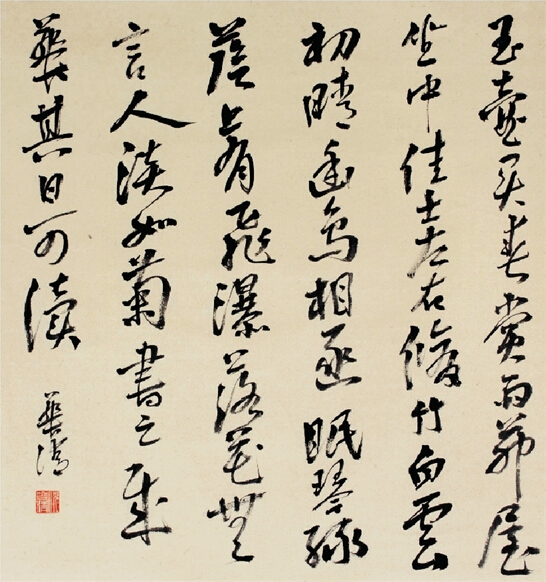 玉壺買春賞雨茆屋
坐中佳士左右脩竹白雲
初晴幽鳥相逐眠琴綠
蔭上有飛瀑落花無
言人淡如菊書之歲
華其曰可讀